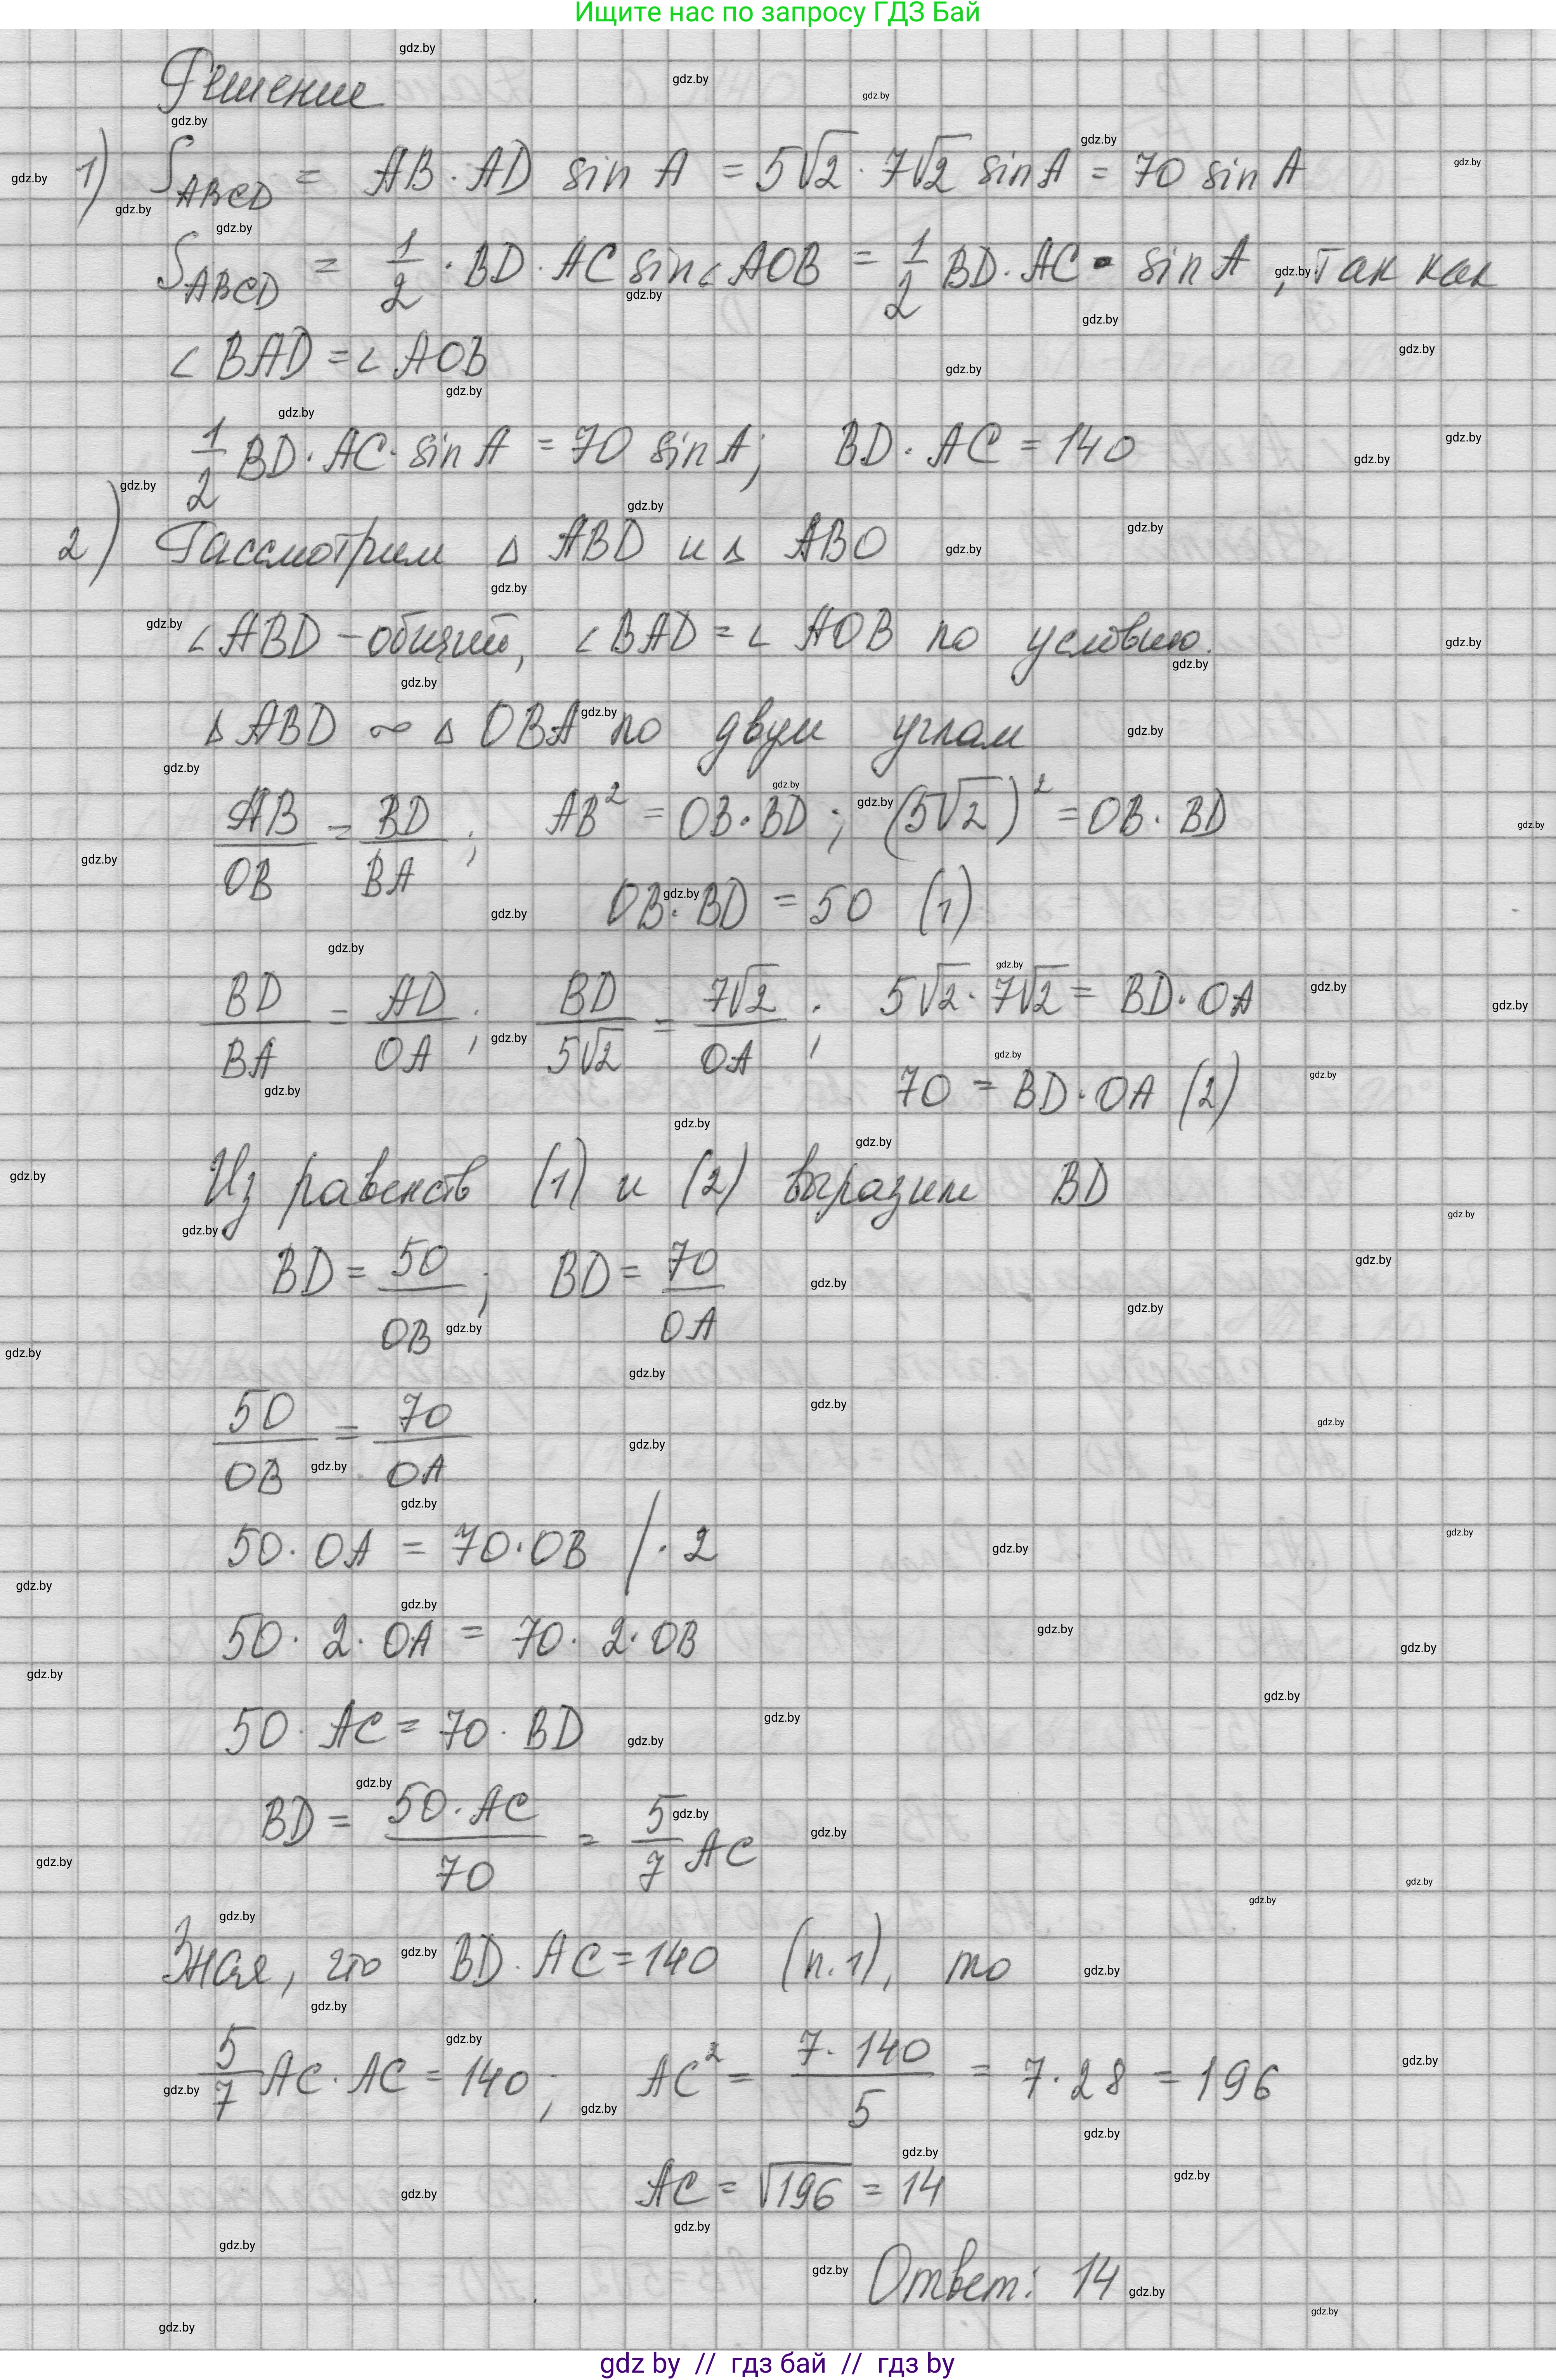 Ищите нас по запросу ГДЗ Бай
Решение
1) S_ABCD = AB · AD sin A = 5√2 · 7√2 sin A = 70 sin A
S_ABCD = 1/2 · BD · AC sin∠AOB = 1/2 BD · AC · sin A, так как
∠BAD = ∠AOB
1/2 BD · AC · sin A = 70 sin A; BD · AC = 140
2) Рассмотрим △ABD и △ABO
∠ABD – общий, ∠BAD = ∠AOB по условию.
△ABD ∾ △OBA по двум углам
AB/OB = BD/BA; AB² = OB · BD; (5√2)² = OB · BD
OB · BD = 50 (1)
BD/BA = AD/OA; BD/5√2 = 7√2/OA; 5√2 · 7√2 = BD · OA
70 = BD · OA (2)
Из равенств (1) и (2) выразим BD
BD = 50/OB; BD = 70/OA
50/OB = 70/OA
50 · OA = 70 · OB / · 2
50 · 2 · OA = 70 · 2 · OB
50 · AC = 70 · BD
BD = 50 · AC/70 = 5/7 AC
Зная, что BD · AC = 140 (п.1), то
5/7 AC · AC = 140; AC² = 7 · 140/5 = 7 · 28 = 196
AC = √196 = 14
Ответ: 14
gdz by // гдз бай // гдз by